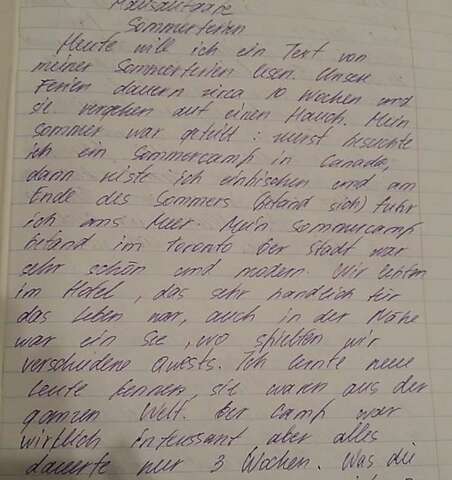 Hausaufgabe
Sommerferien
Heute will ich ein Text von
meiner Sommerferien lesen. Unsere
Ferien dauern zirca 10 Wochen und
sie vergehen auf einen Hauch. Mein
sommer war gefüllt: zuerst besuchte
ich ein Sommercamp in Canada,
dann reiste ich einbischen und am
Ende des Sommers (befand sich) fuhr
ich ans Meer. Mein Sommercamp
befand im Toronto. Der Stadt war
sehr schön und modern. Wir lebten
im Hotel, das sehr handlich für
das Leben war, auch in der Nähe
war ein See, wo spielten wir
verschidene Quests. Ich lernte neue
Leute kennen, sie waren aus der
ganzen Welt. Der Camp war
wirklich interssant aber alles
dauerte nur 3 Wochen. Was die